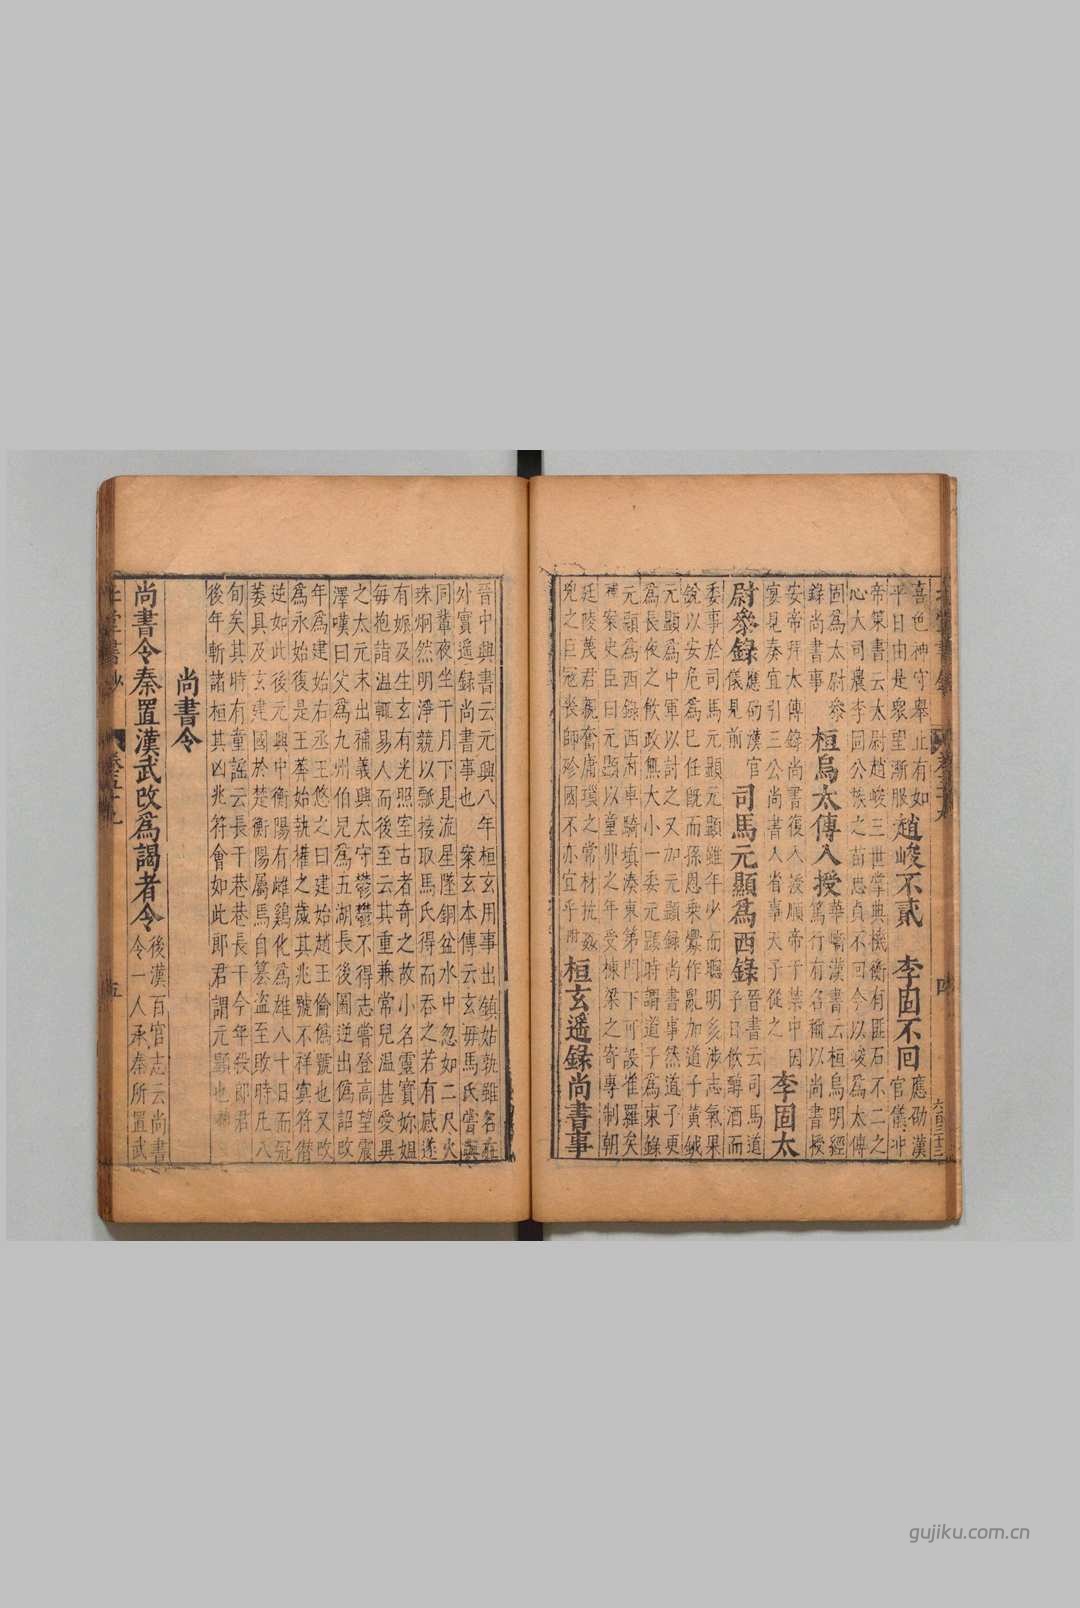 喜色神守舉止有如
平日由是衆望漸服
趙峻不貳　李固不回
應劭漢
官儀冲
帝策書云太尉趙峻三世掌典機衡有匪石不二之
心大司農李固公族之苗忠貞不回今以峻爲太傅
固爲太尉參
錄尚書事
桓烏太傅入授
華嶠漢書云桓烏明經
篤行有名稱以尚書授
安帝拜太傅錄尚書復入授順帝于禁中因
宴見奏宜引三公尚書入省事天子從之
李固太
尉參錄
應劭漢官
儀見前
司馬元顯爲西錄
晉書云司馬道
子日飲醇酒而
委事於司馬元顯元顯雖年少而聰明多涉志氣果
銳以安危爲已任旣而孫恩乗釁作亂加道子黃鉞
元顯爲中軍以討之又加元顯錄尚書事然道子更
爲長夜之飲政無大小一委元顯時謂道子爲東錄
元顯爲西錄西府車騎填湊東第門下可設雀羅矣
案史臣曰元顯以童丱之年受棟梁之寄專制朝
廷陵蔑君親奮庸瑣之常材抗姦
兇之巨冠喪師殄國不亦宜乎附
桓玄遥錄尚書事
六百三十三
晉中興書云元興八年桓玄用事出鎮姑孰雖名在
外實遥錄尚書事也　案玄本傳云玄毋馬氏嘗與
同輩夜坐于月下見流星墜銅盆水中忽如二尺火
珠炯然明淨競以瓢接取馬氏得而吞之若有感遂
有娠及生玄有光照室古者奇之故小名靈寶妳媼
每抱詣温輒易人而後至云其重兼常兒温甚愛異
之太元末出補義興太守鬱鬱不得志嘗登高望震
澤嘆曰父爲九州伯兒爲五湖長後圖逆出僞詔改
年爲建始右丞王悠之曰建始趙王倫僞號也又改
爲永始復是王莾始執權之歲其兆號不祥冥符僭
逆如此後元興中衡陽有雌鷄化爲雄八十日而冠
萎具及玄建國於楚衡陽屬馬自簒盗至敗時凡八
旬矣其時有童謠云長干巷巷長干今年殺郎君
後年斬諸桓其凶兆符會如此郎君謂元顯也
尚書令
尚書令秦置漢武改爲謁者令
後漢百官志云尚書
令一人承秦所置武
北堂書鈔　卷五十九　五
gujiku.com.cn